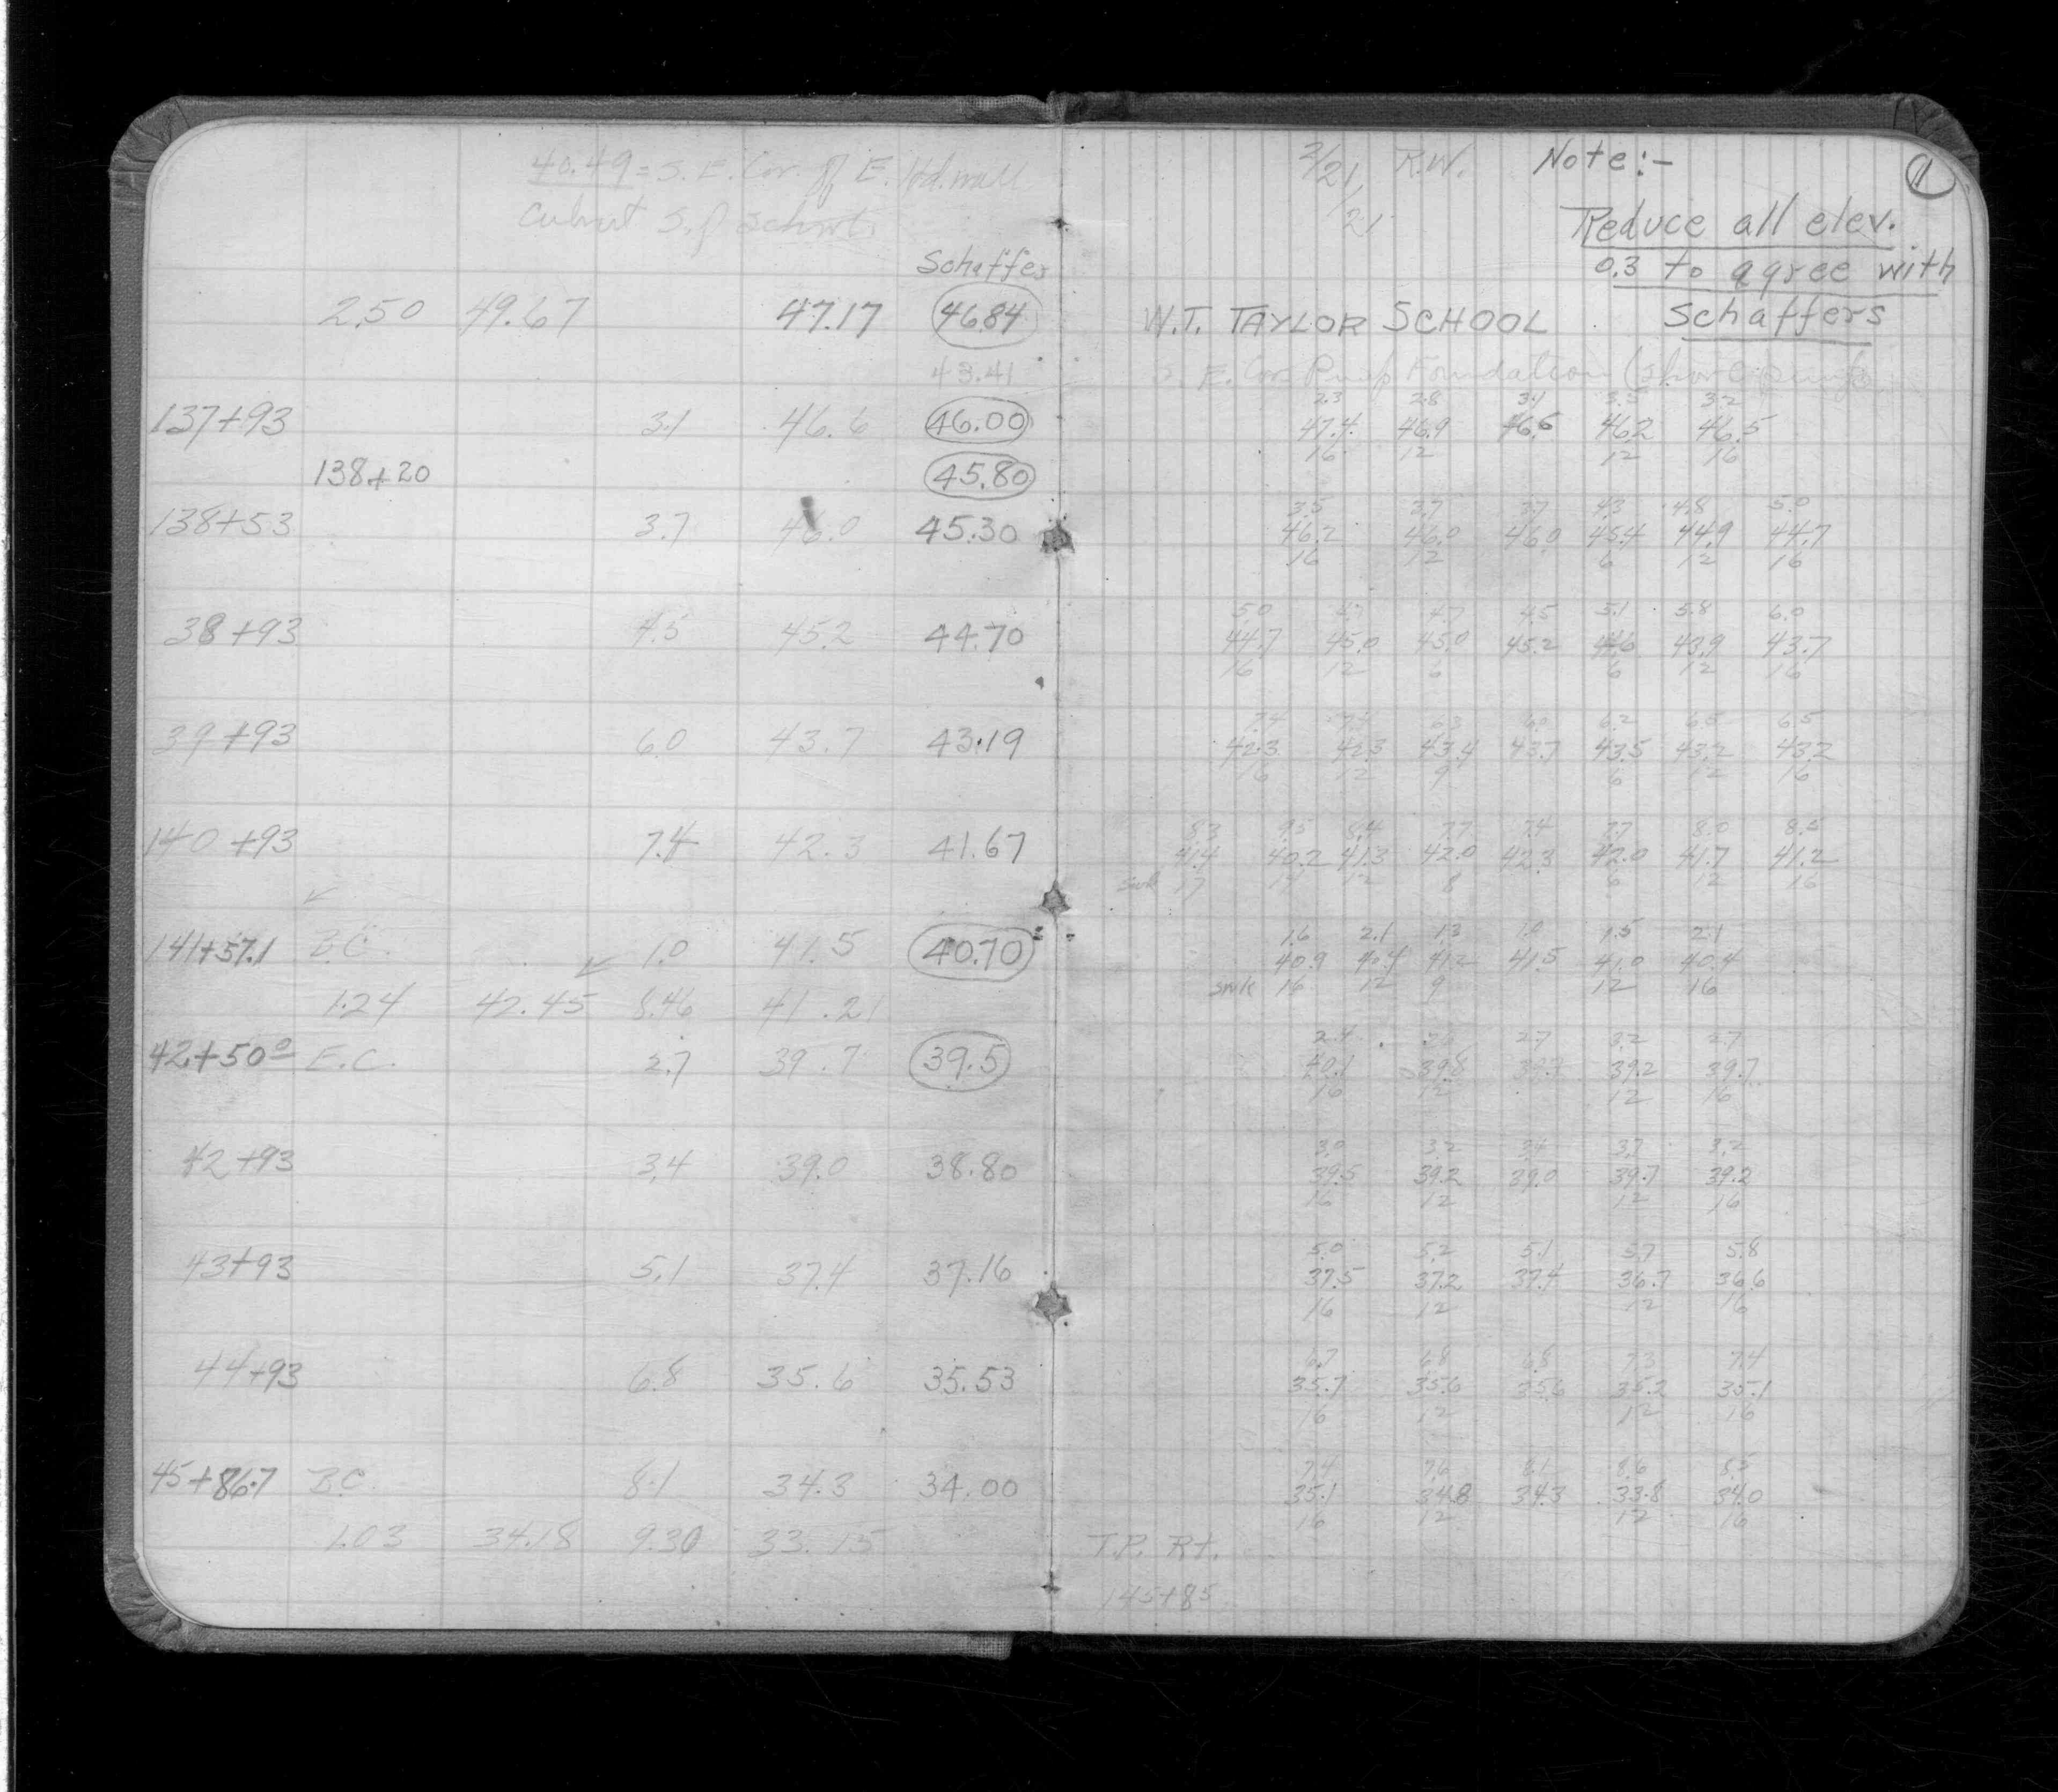 40.49 = S. E. Cor. of E. Hd. wall
Culvert S. of school
Schaffer
2.50 49.67 47.17 46.84
43.41
137+93 3.1 46.6 46.00
138+20 45.80
138+53 3.7 46.0 45.30
38+93 4.5 45.2 44.70
39+93 6.0 43.7 43.19
140+93 7.4 42.3 41.67
141+57.1 B.C. 1.0 41.5 40.70
1.24 42.45 8.46 41.21
42+50º E.C. 2.7 39.7 39.5
42+93 3.4 39.0 38.80
43+93 5.1 37.4 37.16
44+93 6.8 35.6 35.53
45+86.7 B.C. 8.1 34.3 34.00
1.03 34.18 9.30 33.15
2/21, R.W. Note:- 11
21
Reduce all elev.
0.3 to agree with
Schaffers
W.T. TAYLOR SCHOOL
S. E. Cor. Pump Foundation (short pump)
2.3 2.8 3.1 3.5 3.2
47.4 46.9 46.6 46.2 46.5
16 12 12 16
3.5 3.7 3.7 4.3 4.8 5.0
46.2 46.0 46.0 45.4 44.9 44.7
16 12 6 12 16
5.0 4.7 4.7 4.5 5.1 5.8 6.0
44.7 45.0 45.0 45.2 44.6 43.9 43.7
16 12 6 6 12 16
7.4 7.4 6.3 6.0 6.2 6.5 6.5
42.3 42.3 43.4 43.7 43.5 43.2 43.2
16 12 9 6 12 16
8.3 9.5 8.4 7.7 7.4 7.7 8.0 8.5
41.4 40.2 41.3 42.0 42.3 42.0 41.7 41.2
17 12 8 6 12 16
1.6 2.1 1.3 1.0 1.5 2.1
40.9 40.4 41.2 41.5 41.0 40.4
16 12 9 12 16
2.4 2.6 2.7 3.2 2.7
40.1 39.8 39.7 39.2 39.7
16 12 12 16
3.0 3.2 3.4 3.7 3.2
39.5 39.2 39.0 39.7 39.2
16 12 12 16
5.0 5.2 5.1 5.7 5.8
37.5 37.2 37.4 36.7 36.6
16 12 12 16
6.7 6.8 6.8 7.3 7.4
35.7 35.6 35.6 35.2 35.1
16 12 12 16
7.4 7.6 8.1 8.6 8.5
35.1 34.8 34.3 33.8 34.0
16 12 12 16
T.P. Rt.
145+85